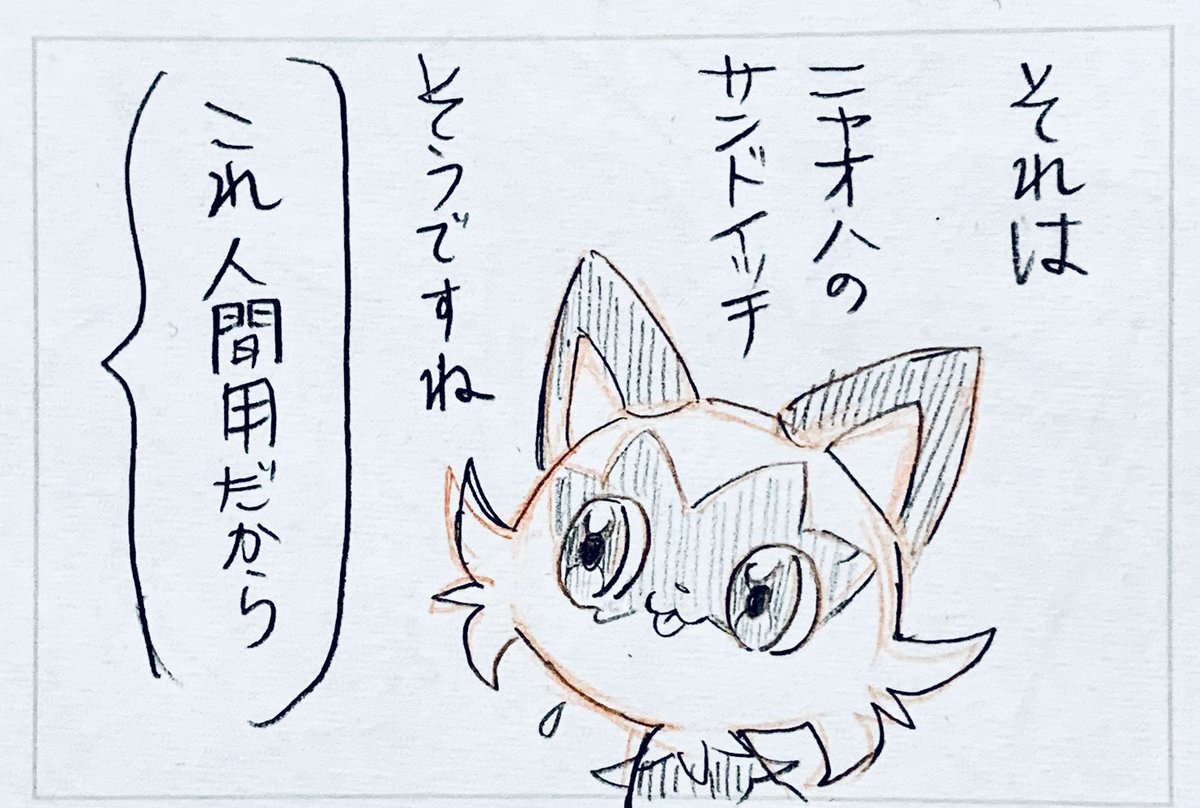 それは
ニャオハの
サンドイッチ
そうですね
これ人間用だから